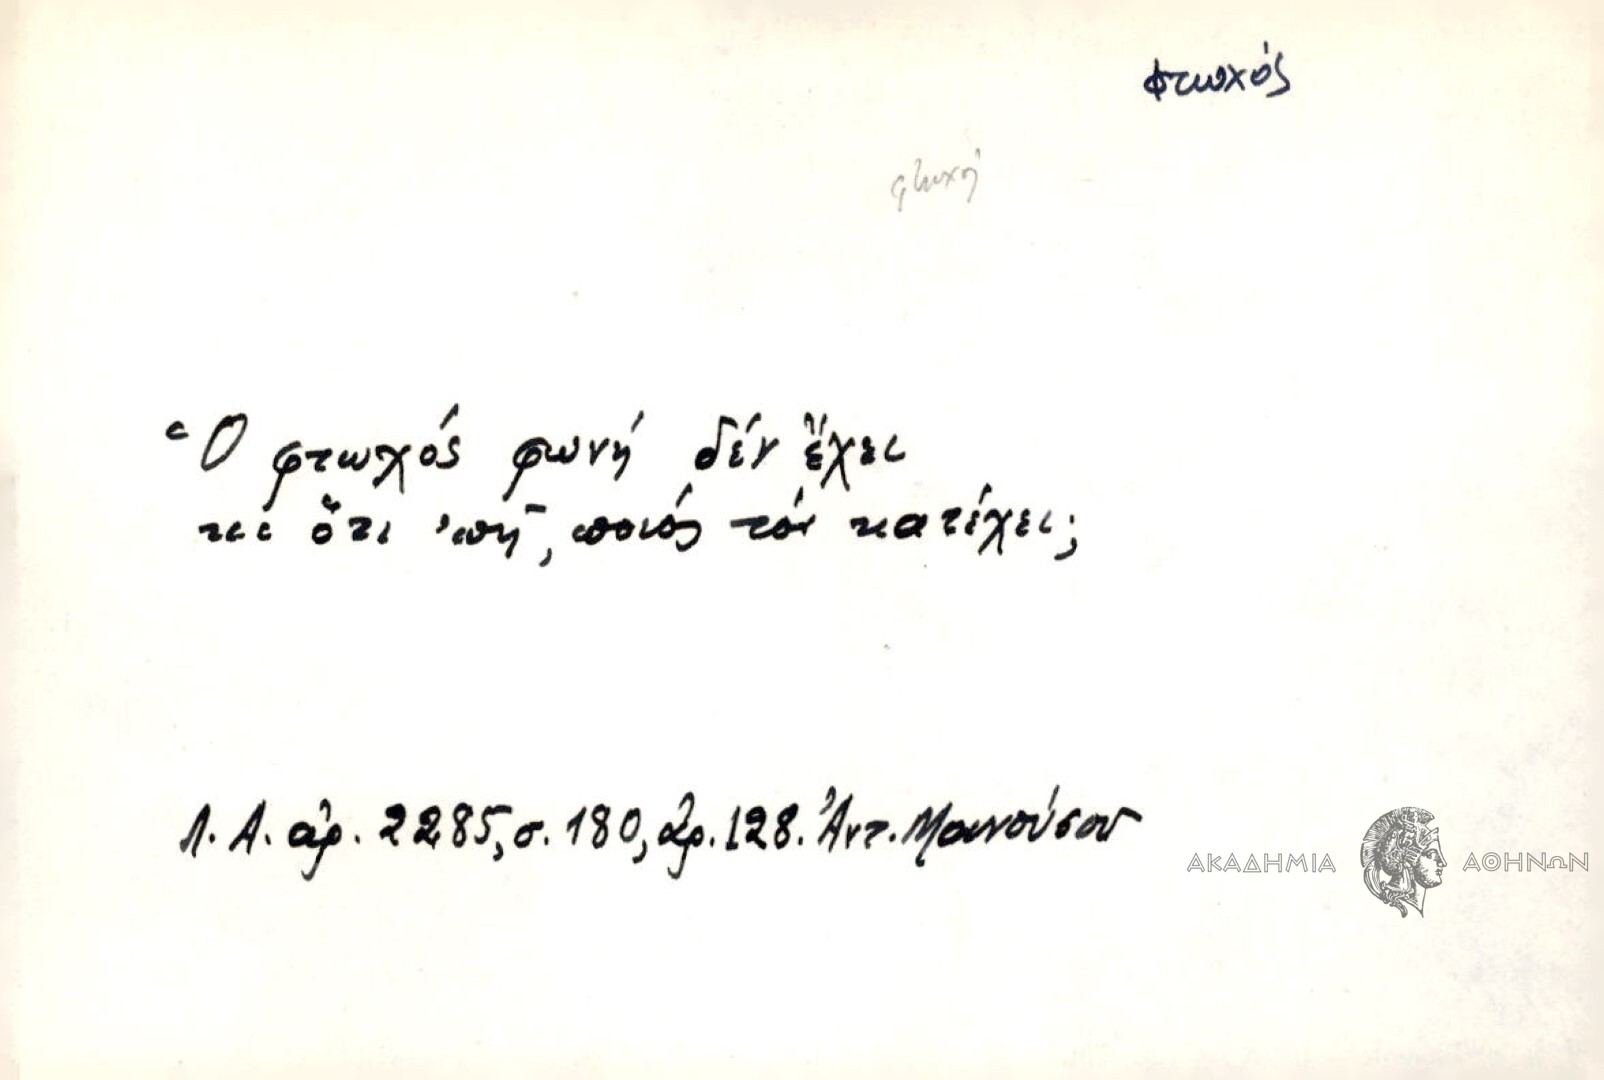 φτωχός
φτωχή
Ὁ φτωχός φωνή δέν ἔχει
κι ὅτι 'πῆ, ποιός τόν κατέχει;
Λ. Α. ἀρ. 2285, σ. 180, ἀρ. 128. Ἀντ. Μανούσου
ΑΚΑΔΗΜΙΑ ΑΘΗΝΩΝ